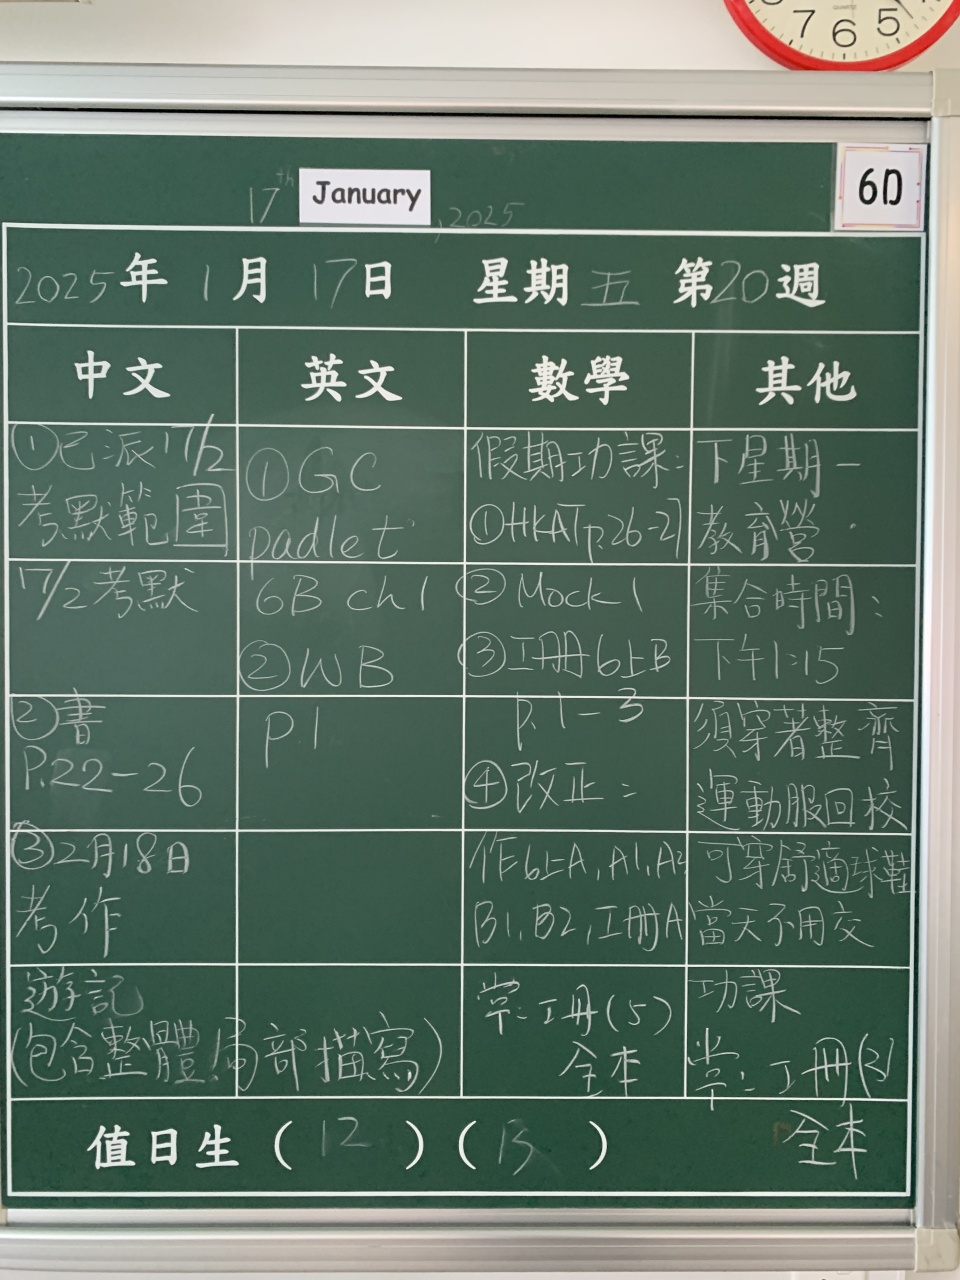 7 6 5
17th January, 2025
6D
2025年1月17日 星期五 第20週
中文
①已派17/2
考默範圍
17/2考默
②書
P.22-26
③2月18日
考作
遊記
(包含整體/局部描寫)
英文
①GC
padlet
6B ch1
②WB
p.1
數學
假期功課:
①HKAT p.26-27
②Mock 1
③工冊6上B
p.1-3
④改正:
作6上A,A1,A2
B1,B2,工冊A
常:工冊(5)
全本
其他
下星期一
教育營.
集合時間:
下午1:15
須穿著整齊
運動服回校
可穿舒適球鞋
當天不用交
功課
常:工冊(3)
全本
值日生(12)(13)